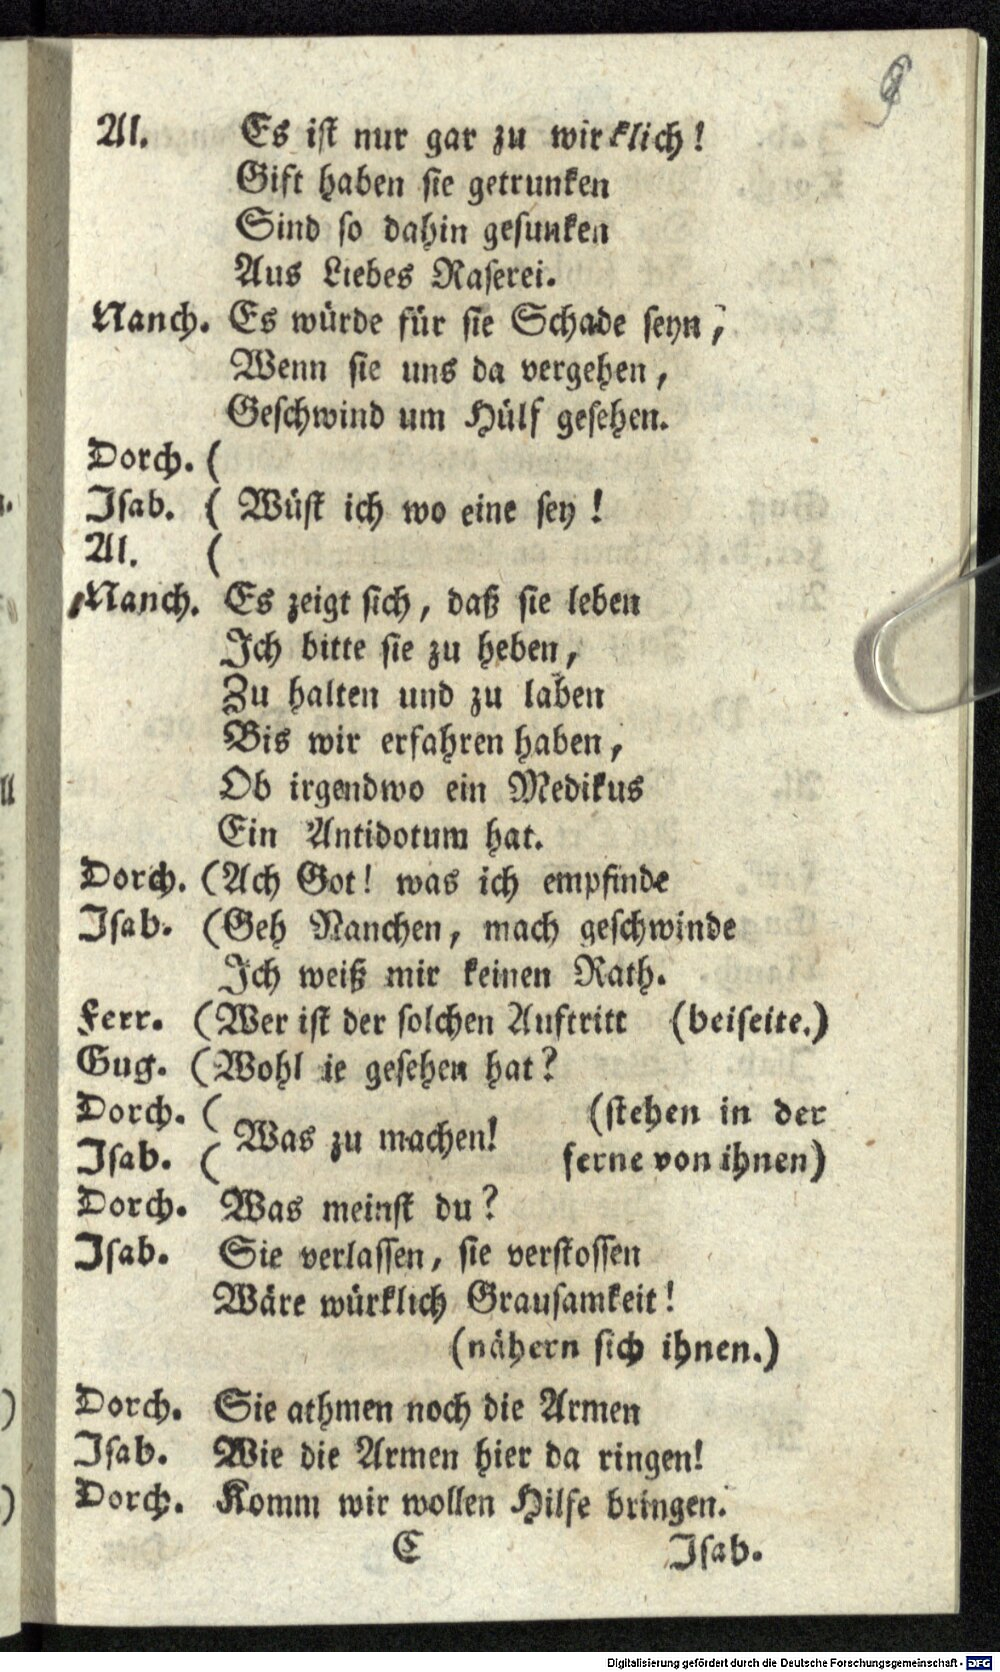 9
Al. Es ist nur gar zu wirklich!
Gift haben sie getrunken
Sind so dahin gesunken
Aus Liebes Raserei.
Nanch. Es würde für sie Schade seyn,
Wenn sie uns da vergehen,
Geschwind um Hülf gesehen.
Dorch. (
Isab. ( Wüst ich wo eine sey!
Al. (
Nanch. Es zeigt sich, daß sie leben
Ich bitte sie zu heben,
Zu halten und zu laben
Bis wir erfahren haben,
Ob irgendwo ein Medikus
Ein Antidotum hat.
Dorch. (Ach Got! was ich empfinde
Isab. (Geh Nanchen, mach geschwinde
Ich weiß mir keinen Rath.
Ferr. (Wer ist der solchen Auftritt (beiseite.)
Gug. (Wohl ie gesehen hat?
Dorch. ( Was zu machen! (stehen in der
Isab. ( ferne von ihnen)
Dorch. Was meinst du?
Isab. Sie verlassen, sie verstossen
Wäre würklich Grausamkeit!
(nähern sich ihnen.)
Dorch. Sie athmen noch die Armen
Isab. Wie die Armen hier da ringen!
Dorch. Komm wir wollen Hilfe bringen.
C Isab.
Digitalisierung gefördert durch die Deutsche Forschungsgemeinschaft - DFG